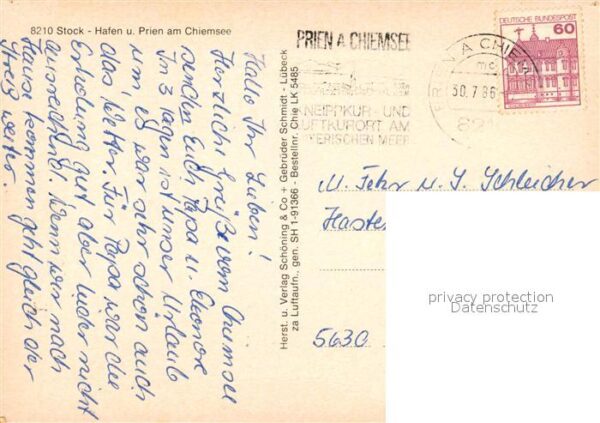 8210 Stock - Hafen u. Prien am Chiemsee
Hallo Ihr Lieben!
Herzliche Grüße vom Chiemsee
senden Euch Papa u. Eleonore
In 3 Tagen ist unser Urlaub
um es war sehr schön auch
das Wetter. Für Papa war die
Erholung gut aber leider nicht
ausreichend. Wenn wir nach
Hause kommen geht gleich der
Streß weiter.
Herst. u. Verlag Schöning & Co + Gebrüder Schmidt - Lübeck
za Luftaufn., gen. SH 1-91366 - Bestellnr. Chie LK 5485
PRIEN A CHIEMSEE
NEIPPKUR- UND
UFTKURORT AM
YERISCHEN MEER
PRIEN A CHIEM
mc
30.7.86
821
DEUTSCHE BUNDESPOST
60
M. Fehr u. J. Schleicher
Hasten
5630
privacy protection
Datenschutz